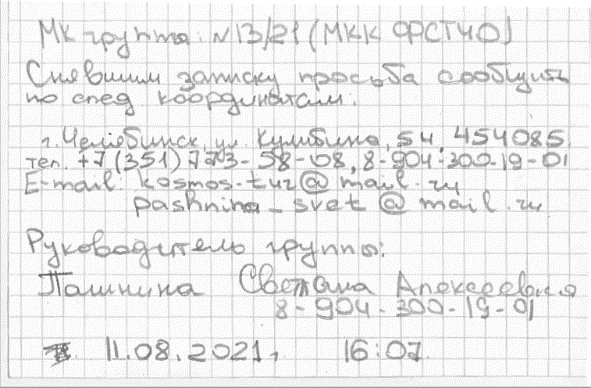 МК группа: №13/21 (МКК ФСТЧО)
Снявшим записку просьба сообщить
по след координатам:
г. Челябинск, ул. Кулибина, 54, 454085.
тел. +7(351)773-58-08, 8-904-300-19-01
E-mail: kosmos-tur@mail.ru
pashnina_svet@mail.ru
Руководитель группы:
Пашнина Светлана Алексеевна
8-904-300-19-01
11.08.2021г. 16:07